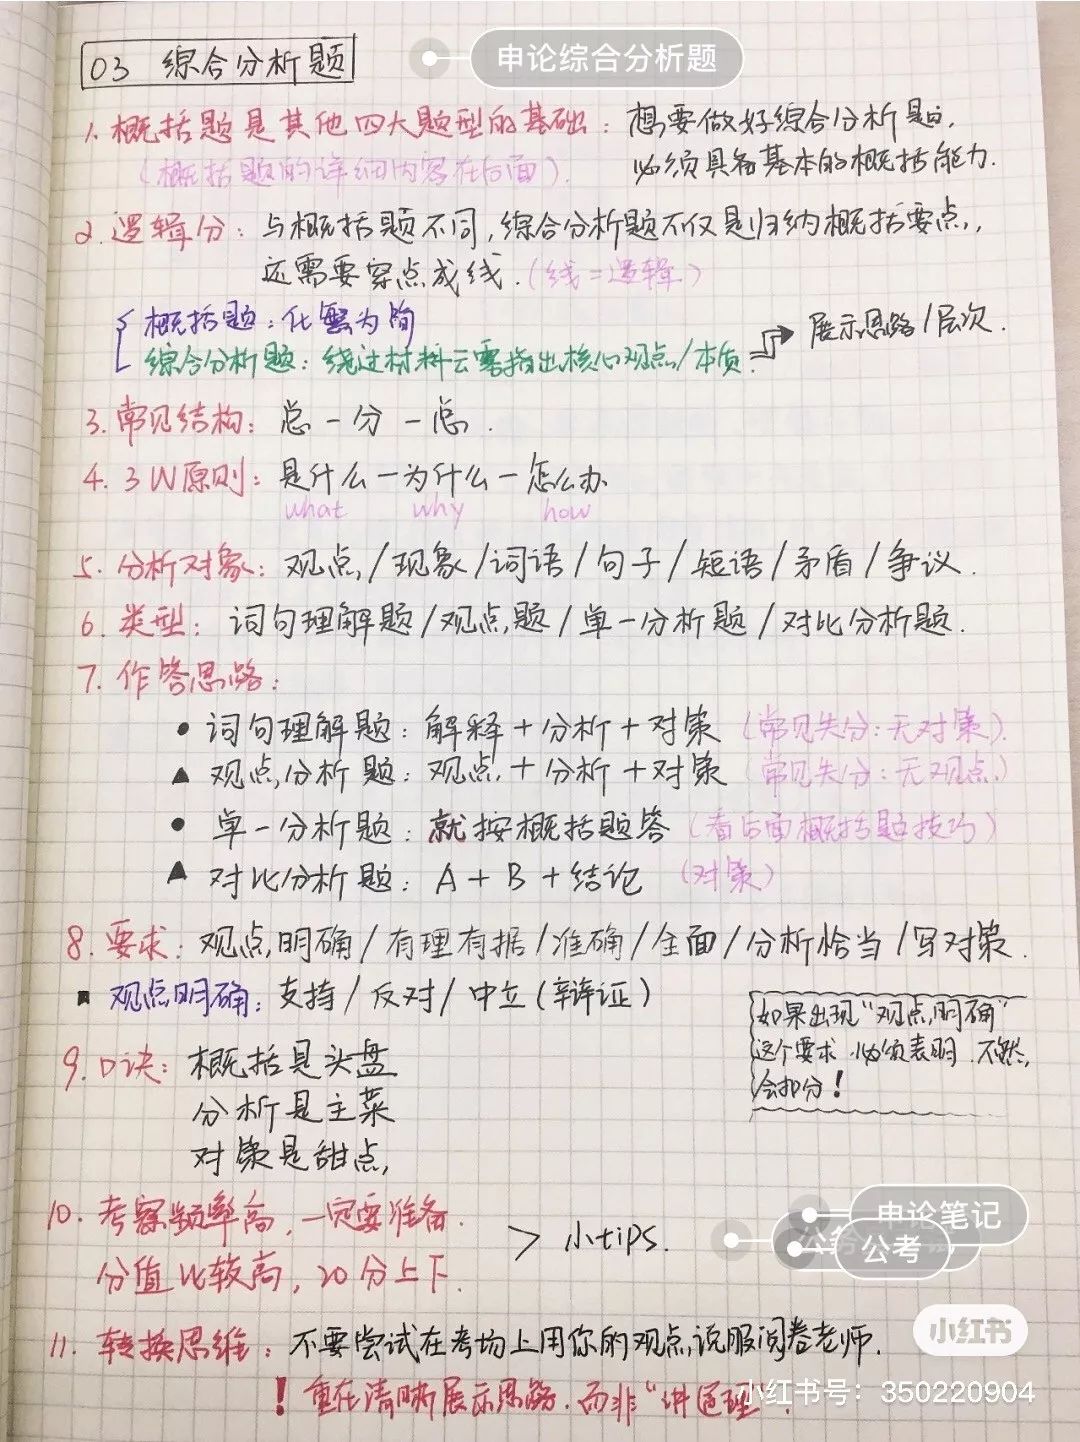 03 综合分析题
申论综合分析题
1. 概括题是其他四大题型的基础：想要做好综合分析题，
（概括题的详细内容在后面）. 必须具备基本的概括能力.
2. 逻辑分：与概括题不同，综合分析题不仅是归纳概括要点，
还需要穿点成线.（线=逻辑）
概括题：化繁为简
综合分析题：绕过材料云雾指出核心观点/本质. 展示思路/层次.
3. 常见结构：总－分－总.
4. 3W原则：是什么－为什么－怎么办
what why how
5. 分析对象：观点/现象/词语/句子/短语/矛盾/争议.
6. 类型：词句理解题/观点题/单一分析题/对比分析题.
7. 作答思路：
● 词句理解题：解释+分析+对策（常见失分：无对策）.
▲ 观点分析题：观点+分析+对策（常见失分：无观点）
● 单一分析题：就按概括题答（看后面概括题技巧）
▲ 对比分析题：A+B+结论（对策）
8. 要求：观点明确/有理有据/准确/全面/分析恰当/写对策.
■ 观点明确：支持/反对/中立（辩证）
如果出现“观点明确”
这个要求，必须表明，不然，
会扣分！
9. 口诀：概括是头盘
分析是主菜
对策是甜点，
10. 考察频率高，一定要准备.
分值比较高，20分上下.
> 小tips.
申论笔记
公考
11. 转换思维：不要尝试在考场上用你的观点说服阅卷老师.
！重在清晰展示思路，而非“讲道理”.
小红书
小红书号：350220904